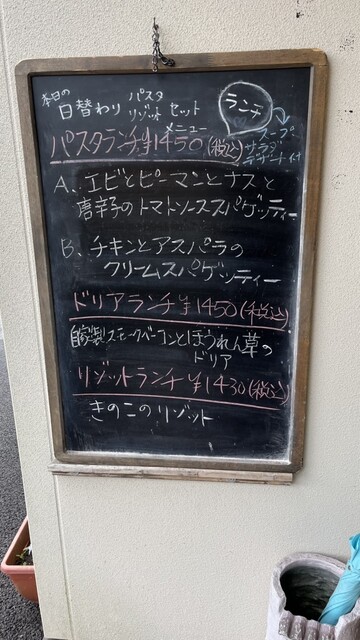 本日の
日替わり パスタ リゾット セット メニュー
ランチ
スープ
サラダ
デザート付
パスタランチ¥1450(税込)
A、エビとピーマンとナスと
唐辛子のトマトソーススパゲッティー
B、チキンとアスパラの
クリームスパゲッティー
ドリアランチ¥1450(税込)
自家製スモークベーコンとほうれん草の
ドリア
リゾットランチ¥1430(税込)
きのこのリゾット